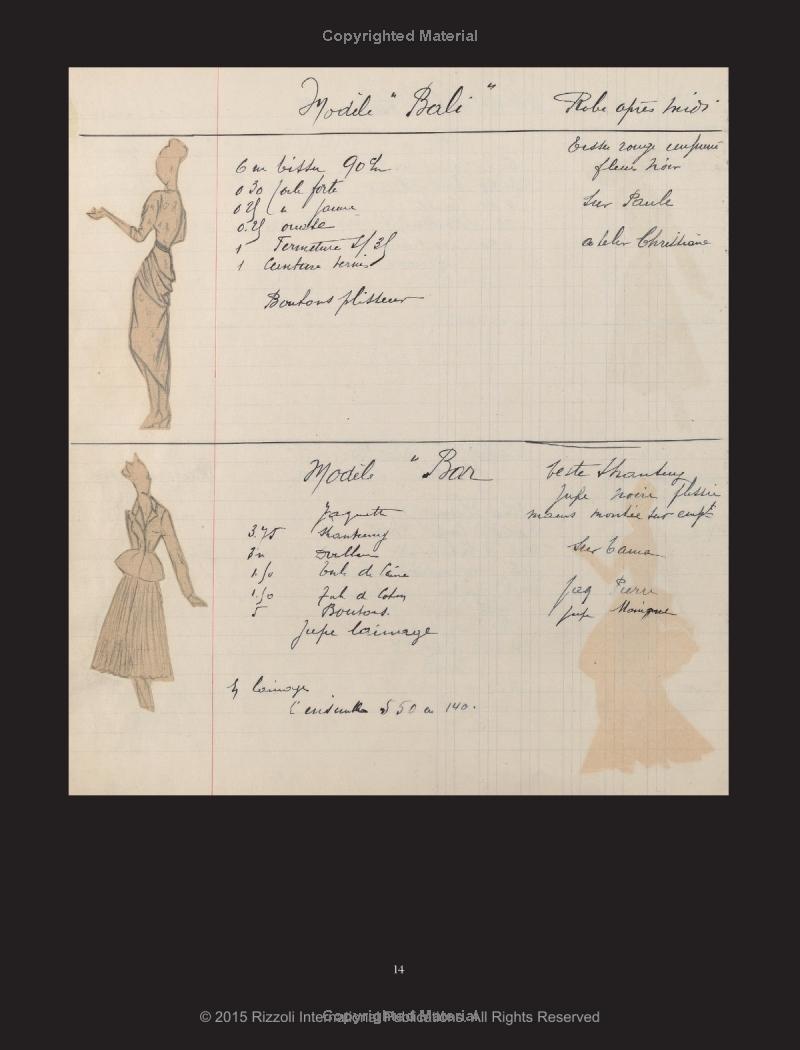 Copyrighted Material
Modèle "Bali"
Robe après midi
6 m tissu 90
0 30 toile forte
0 25 " " jaune
0.25
1 Fermeture 35
1 Ceinture vernis
Boutons plisseur
Tissu rouge imprimé
fleurs noir
Sur Paule
atelier Christiane
Modèle "Bar
Jaquette
3.75 Shantung
3m
1.50 de laine
1.50 de Coton
5 Boutons.
Jupe lainage
lainage
L'ensemble 50 140.
Veste Shantung
Jupe noire plissée
mains montée sur empt
Sur Tania
Jaq Pierre
jup Monique
14
© 2015 Rizzoli International Publications. All Rights Reserved
Copyrighted Material